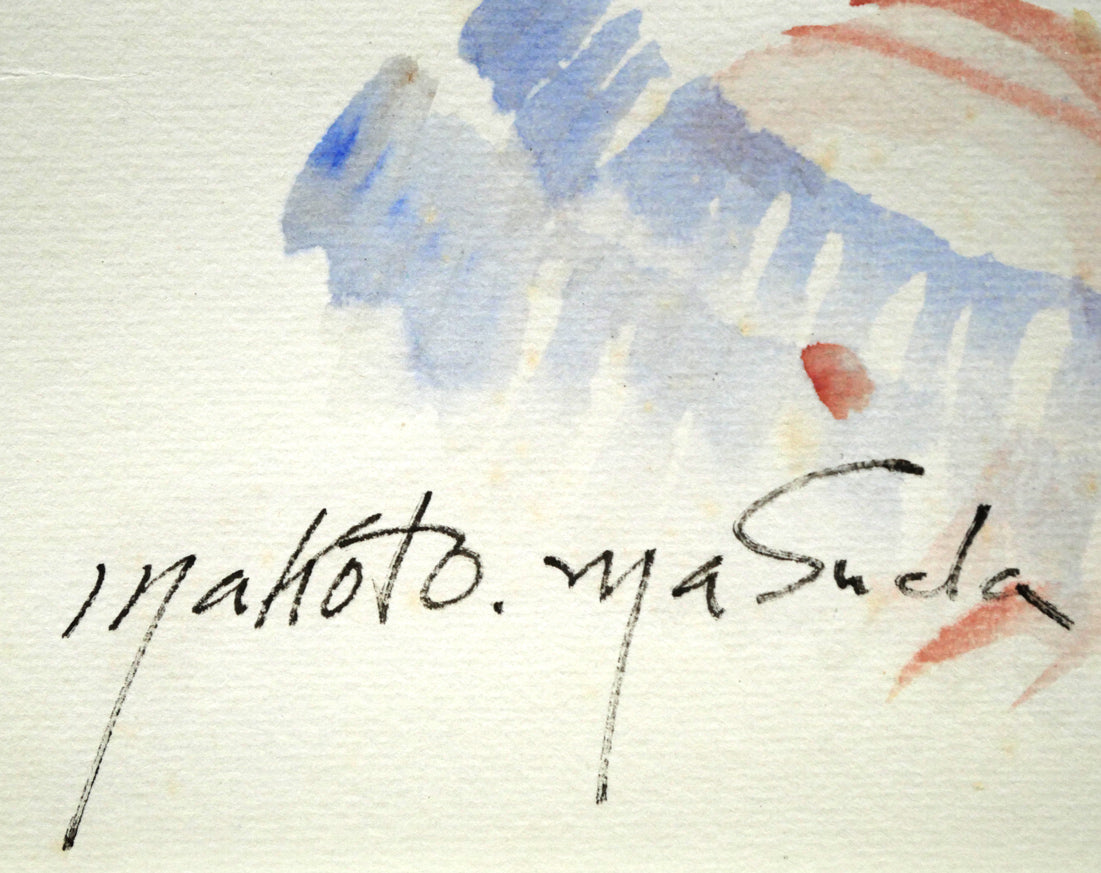 Makoto. MaSuda